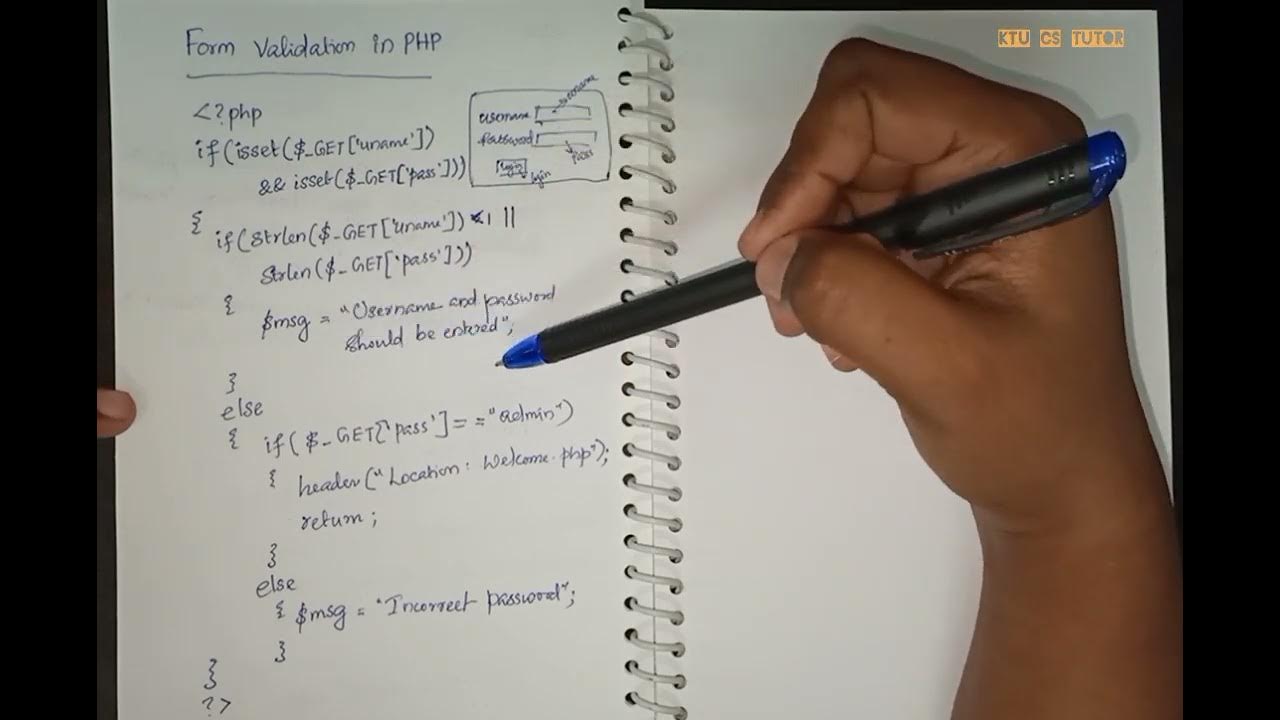 KTU CS TUTOR
Form Validation in PHP
<?php
if(isset($_GET['uname'])
&& isset($_GET['pass']))
username
username
password
pass
login
login
{ if(strlen($_GET['uname']) <1 ||
strlen($_GET['pass']))
{ $msg = "Username and password
should be entered";
}
else
{ if($_GET['pass']=="admin")
{ header("Location: Welcome.php");
return;
}
else
{ $msg = "Incorrect password";
}
}
?>